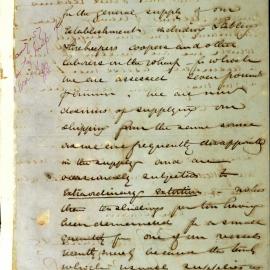 for the general supply of our
Establishments including Stabling
Storekeepers coopers and other
laborers on the wharf for which
we are assessed Seven pounds
P annum; we are most
desirous of supplying our
shipping from the same source
as we are frequently disappointed
in the supply and are
occasionally subjected to
extraordinary extortion - no less
than ten shillings per ton having
been demanded for a small
quantity for one of our vessels
recently merely because the tank
which usually supplies